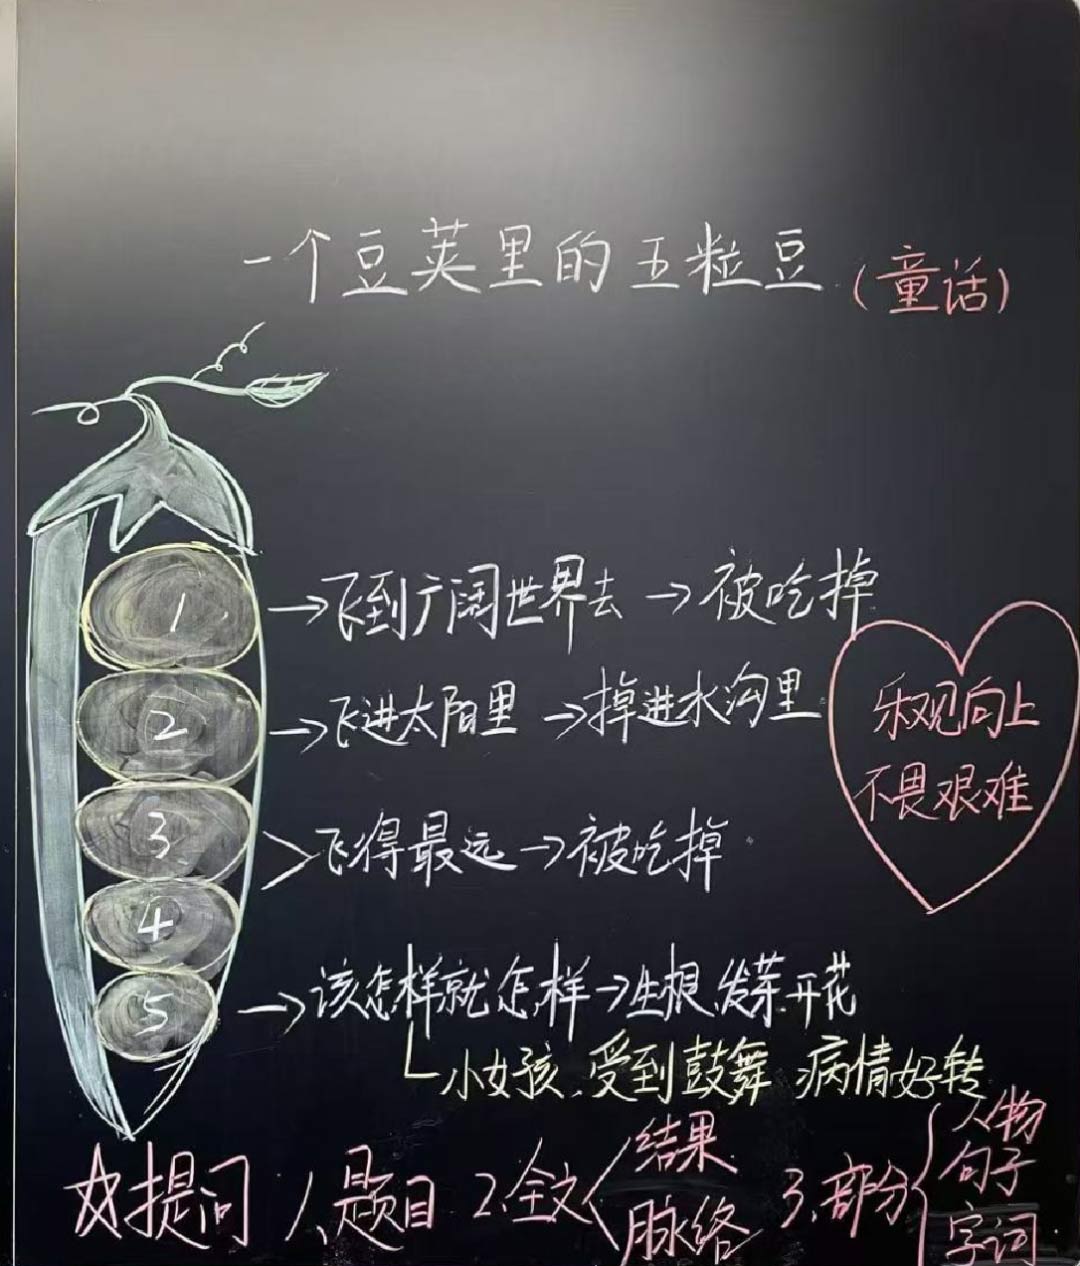 一个豆荚里的五粒豆（童话）
1 →飞到广阔世界去 →被吃掉
2 →飞进太阳里 →掉进水沟里
乐观向上
不畏艰难
3
4
飞得最远→被吃掉
5 →该怎样就怎样→生根、发芽、开花
小女孩、受到鼓舞 病情好转
☆提问 1、题目 2、全文 结果 脉络 3、部分 人物 句子 字词